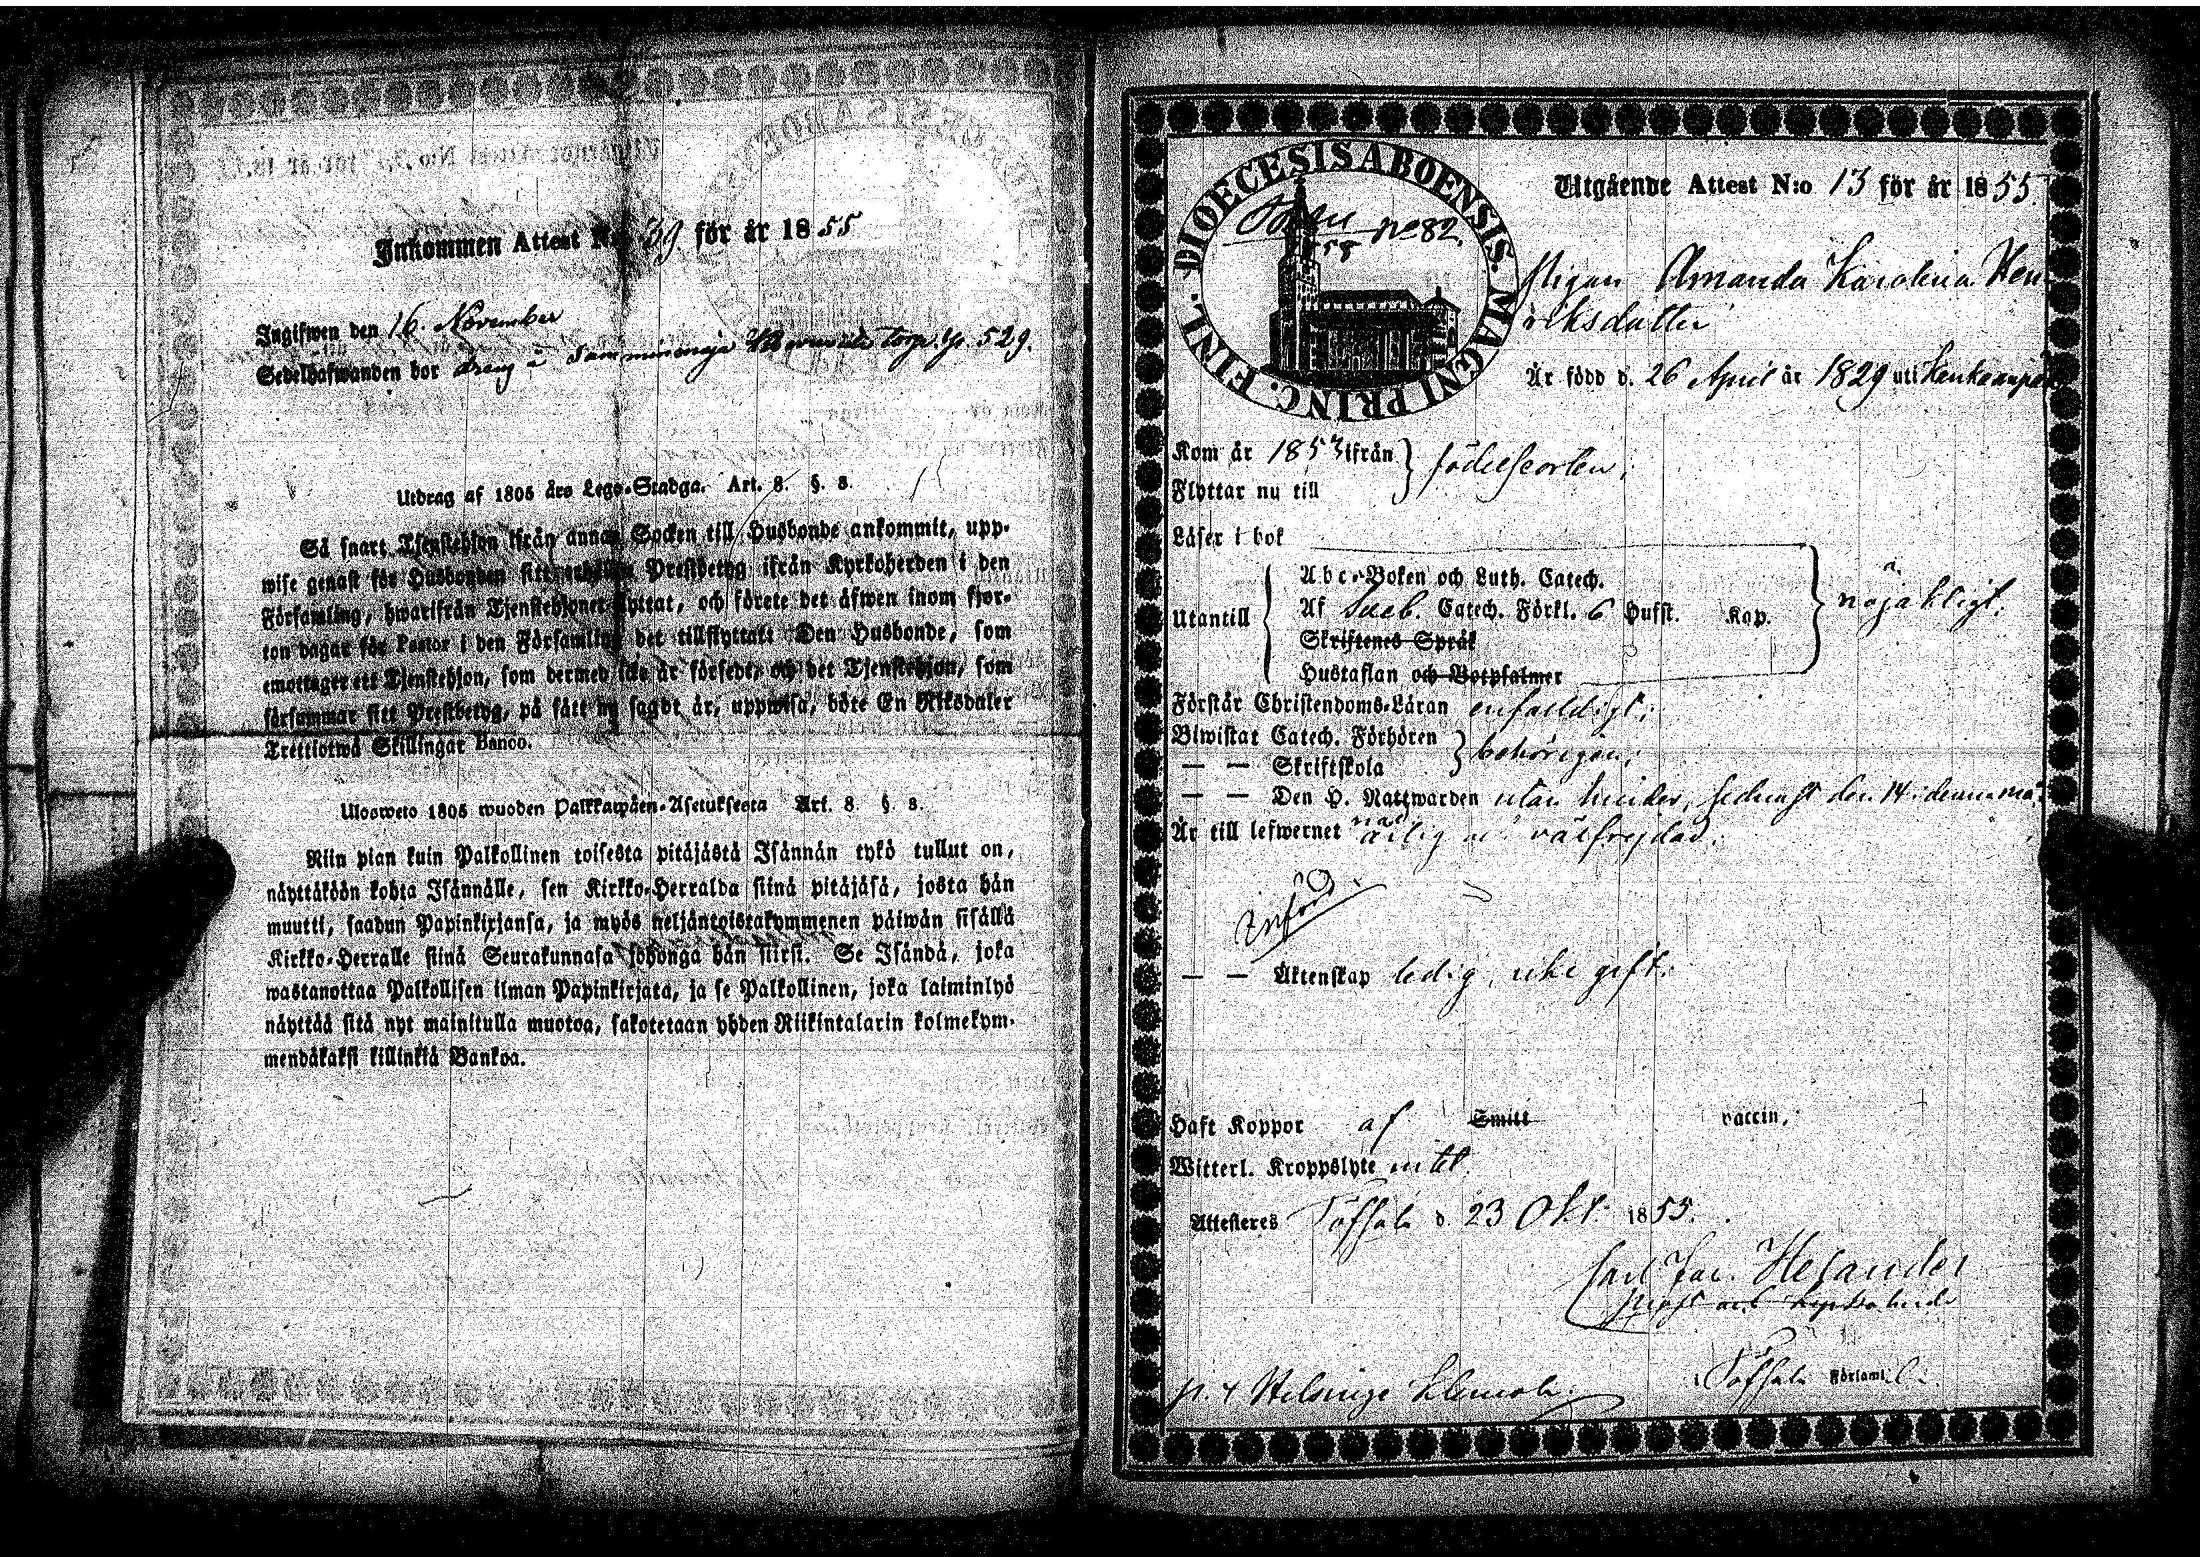 Inkommen Attest N:o 39 för år 1855
Ingifwen den 16. November
Sedelhafwanden bor dräng å torp. p. 529.
Utdrag af 1805 års Lego-Stadga. Art. 8. §. 8.
Så snart Tjenstehjon ifrån annan Socken till Husbonde ankommit, upp-
wise genast för Husbonden sitt erhållna Prestbetyg ifrån Kyrkoherden i den
Församling, hwarifrån Tjenstehjonet flyttat, och förete det äfwen inom fjor-
ton dagar för Pastor i den Församling det tillflyttat. Den Husbonde, som
emottager ett Tjenstehjon, som dermed icke är försedt, och det Tjenstehjon, som
försummar sitt Prestbetyg, på sätt nu sagdt är, uppwisa, böte En Riksdaler
Trettiotwå Skillingar Banco.
Ulosweto 1805 wuoden Palkkawäen-Asetuksesta Art. 8. §. 8.
Niin pian kuin Palkollinen toisesta pitäjästä Isännän tykö tullut on,
näyttäköön kohta Isännälle, sen Kirkko-Herralda siinä pitäjäsä, josta hän
muutti, saadun Papinkirjansa, ja myös neljäntoistakymmenen päiwän sisällä
Kirkko-Herralle siinä Seurakunnasa johonga hän siirsi. Se Isändä, joka
wastanottaa Palkollisen ilman Papinkirjata, ja se Palkollinen, joka laiminlyö
näyttää sitä nyt mainitulla muotoa, sakotetaan yhden Riikintalarin kolmekym-
mendäkaksi killinkiä Bankoa.
DIOECESIS ABOENSIS. MAGNI PRINC. FINL.
58 No 82.
Utgående Attest N:o 13 för år 1855.
Pigan Amanda Karolina Hen
riksdotter
Är född d. 26 April år 1829 uti
Kom år 1853 ifrån födelseorten;
Flyttar nu till
Läser i bok
Abc-Boken och Luth. Catech.
Utantill Af Sveb. Catech. Förkl. 6 Hufst. Kap. nöjakligt;
Skriftenes Språk
Hustaflan och Botpsalmer
Förstår Christendoms-Läran enfaldigt;
Biwistat Catech. Förhören behörigen;
— — Skriftskola
— — Den H. Nattwarden utan hinder, sednast den 14 dennes
Är till lefwernet ärlig och välfrejdad;
— — Äktenskap ledig, icke gift.
Haft Koppor af Smitt vaccin,
Witterl. Kroppslyte intet.
Attesteres Töfsala d. 23 Okt. 1855.
Carl Jac. Helander
Prost och Kyrkoherde
i Töfsala Församl.